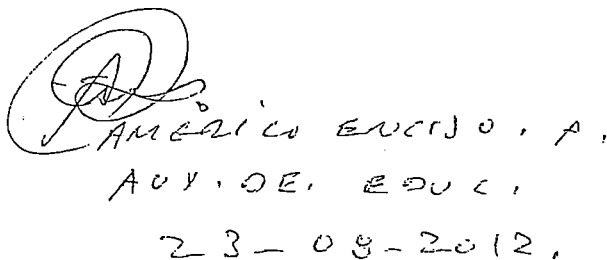 AMÉRICO ENCISO. A.
AUX. DE. EDUC.
23-08-2012.